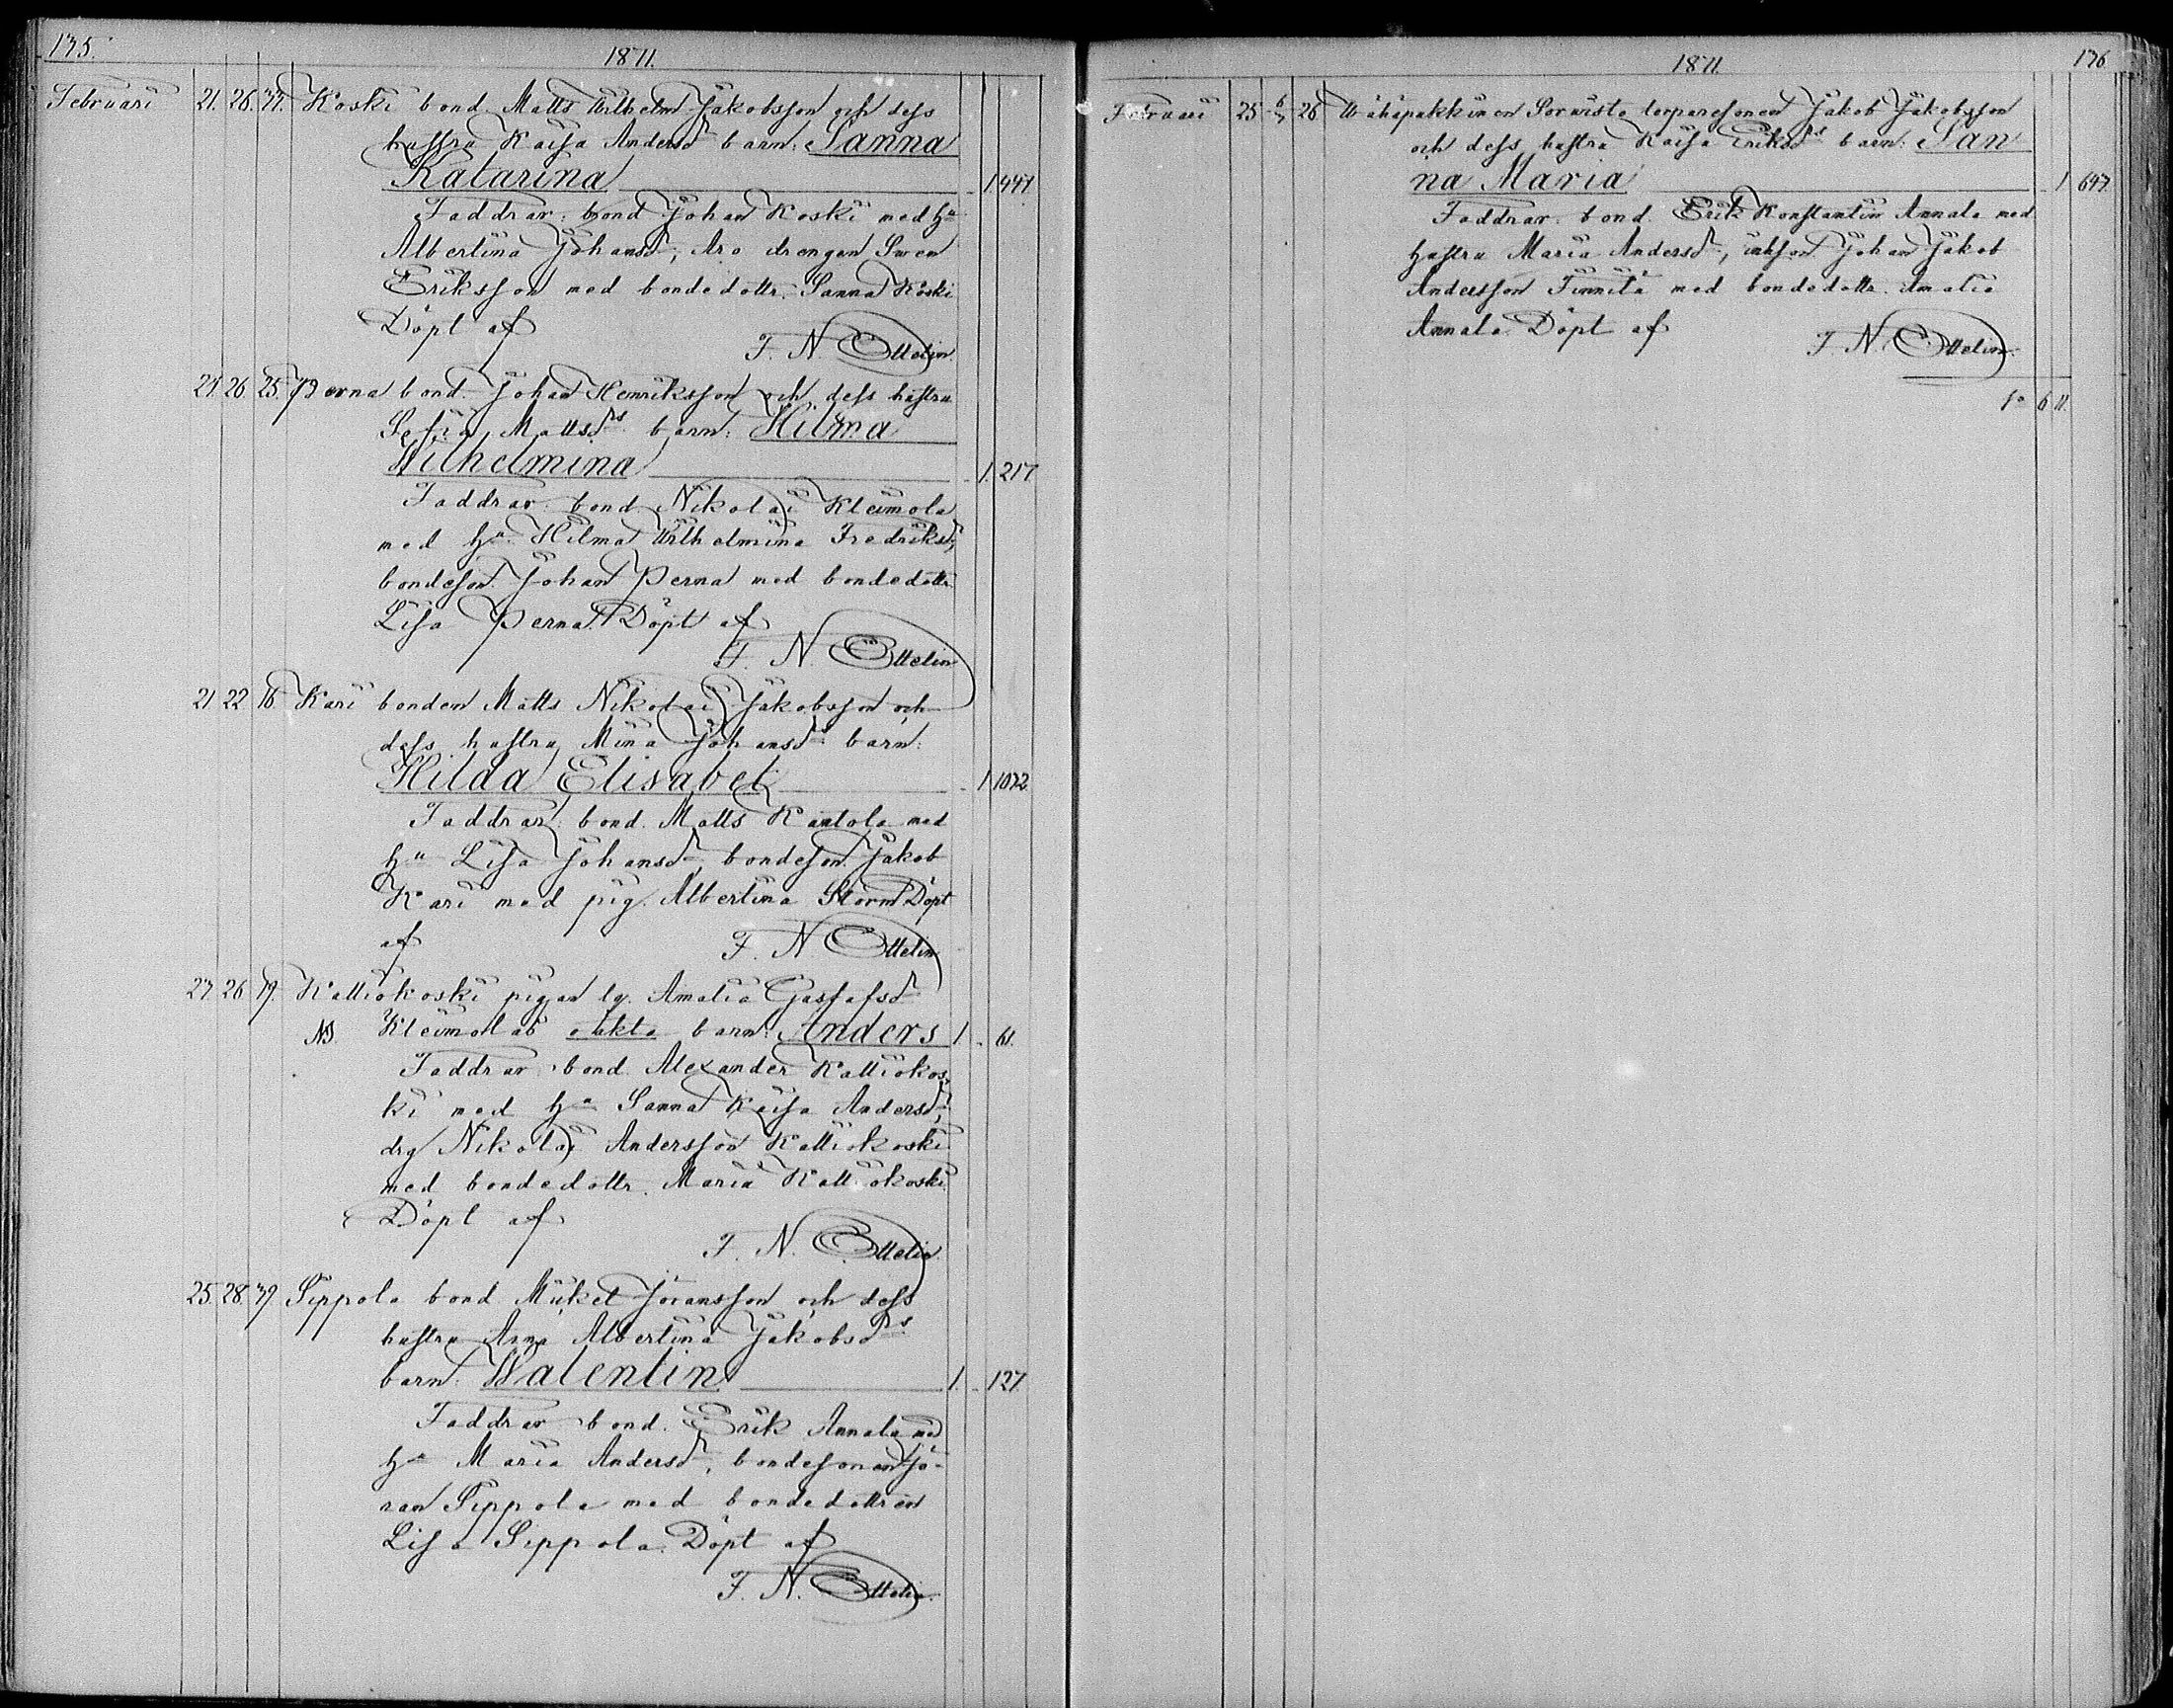 135.
1871.
Februari 21. 26. 37. Koski bond. Matts Wilhelm Jakobsson och dess
hustru Kaisa Andersd barn: Sanna
Katarina 1 447.
Faddrar: bond Johan Koski med hu
Albertina Johansd, Aro drengen Swen
Eriksson med bondedottr. Sanna Koski
Döpt af
F. N. Ottelin.
21. 26. 25. Perna bond. Johan Henriksson och dess hustru
Sofia Mattsds barn: Hilma
Wilhelmina 1. 217
Faddrar bond Nikolai Kleimola
med hu Hilma Wilhelmina Fredriksd,
bondeson Johan Perna med bondedottr.
Lisa Perna. Döpt af
F. N. Ottelin
21 22 16 Kari bonden Matts Nikolai Jakobsson och
dess hustru Mina Johansds barn:
Hilda Elisabet 1 1032
Faddrar: bond. Matts Kantola med
hu Lisa Johansd, bondeson. Jakob
Kari med pig. Albertina Storm Döpt
af F. N. Ottelin
23 26 19. Kalliokoski pigan lg. Amalia Gustafsd
NB. Kleimolas oäkta barn: Anders 1. 61.
Faddrar bond Alexander Kalliokos-
ki med hu Sanna Kaisa Andersd,
drg Nikolai Andersson Kalliokoski
med bondedottr. Maria Kalliokoski.
Döpt af
F. N. Ottelin.
25. 28. 39 Sippola bond Mickel Jöransson och dess
hustru Anna Albertina Jakobsds
barn: Walentin 1. 127.
Faddrar bond. Erik Annala med
hu Maria Andersd, bondesonen Jö-
ran Sippola med bondedottren
Lisa Sippola. Döpt af
F. N. Ottelin.
1871 136
Februari 25 6/3 26 Wähäpakkinen torparesonen Jakob Jakobsson
och dess hustru Kaisa Eriksds barn: San
na Maria 1 647.
Faddrar: bond. Erik Konstantin Annala med
hustru Maria Andersd, Johan Jakob
Andersson Finnilä med bondedottr. Amalia
Annala. Döpt af F. N. Ottelin.
6 11.